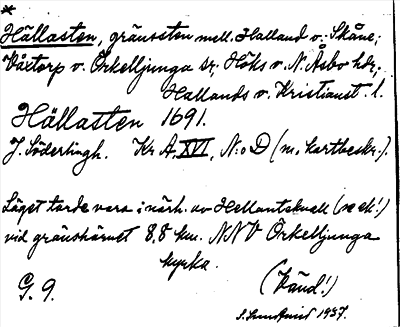 *
Hällasten, gränssten mell. Halland o. Skåne;
Våxtorp o. Örkelljunga sr, Höks o. N. Åsbo hdr,
Hallands o. Kristianst. l.
Hällasten 1691.
J. Söderlingh. Kr A, XVI, N:o D (m. kartbeskr.).
Läget torde vara i närh. av Hellantskull (se ek!)
vid gränshörnet 8,8 km. NNV Örkelljunga
kyrka.
G. 9. (Vänd!)
1937.